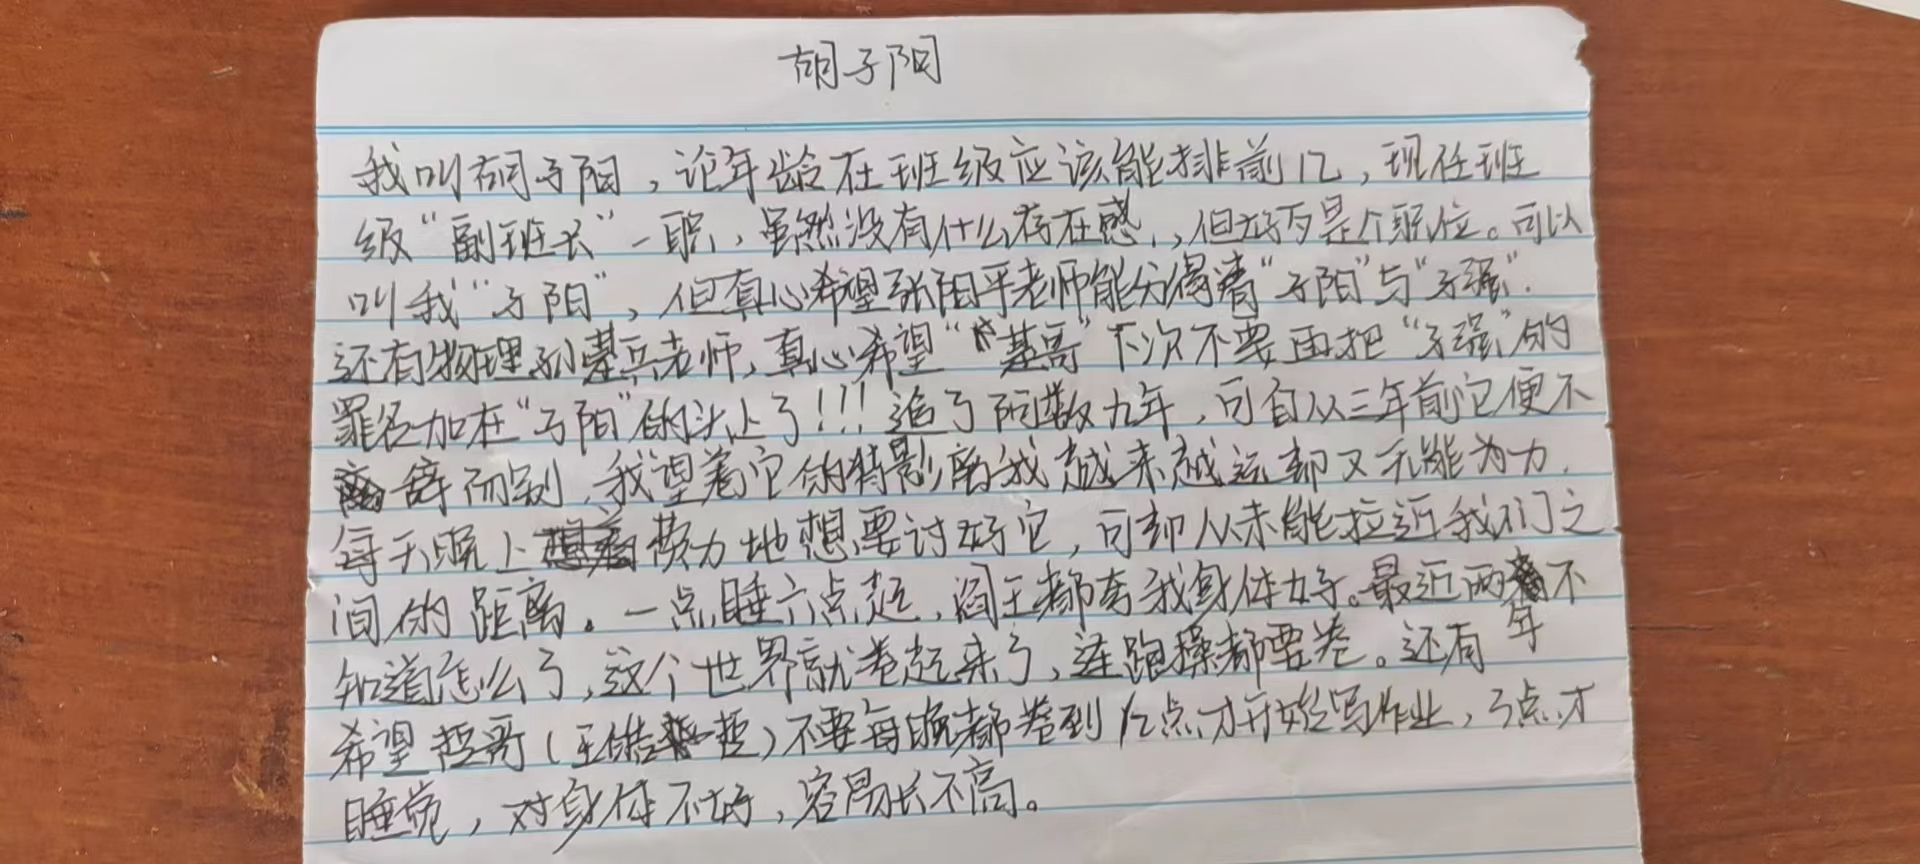 胡子阳
我叫胡子阳，论年龄在班级应该能排前12，现任班
级“副班长”一职，虽然没有什么存在感，但好歹是个职位。可以
叫我“子阳”，但真心希望张阳平老师能分得清“子阳”与“子强”.
还有物理孙基兵老师，真心希望“基哥”下次不要再把“子强”的
罪名加在“子阳”的头上了!!!追了阿数九年，可自从三年前它便不
辞而别，我望着它的背影离我越来越远却又无能为力.
每天晚上费力地想要讨好它，可却从未能拉近我们之
间的距离。一点睡六点起，阎王都夸我身体好。最近两年不
知道怎么了，这个世界就卷起来了，连跑操都要卷。还有
希望哲哥(王皓哲)不要每晚都卷到12点才开始写作业，3点才
睡觉，对身体不好，容易长不高。